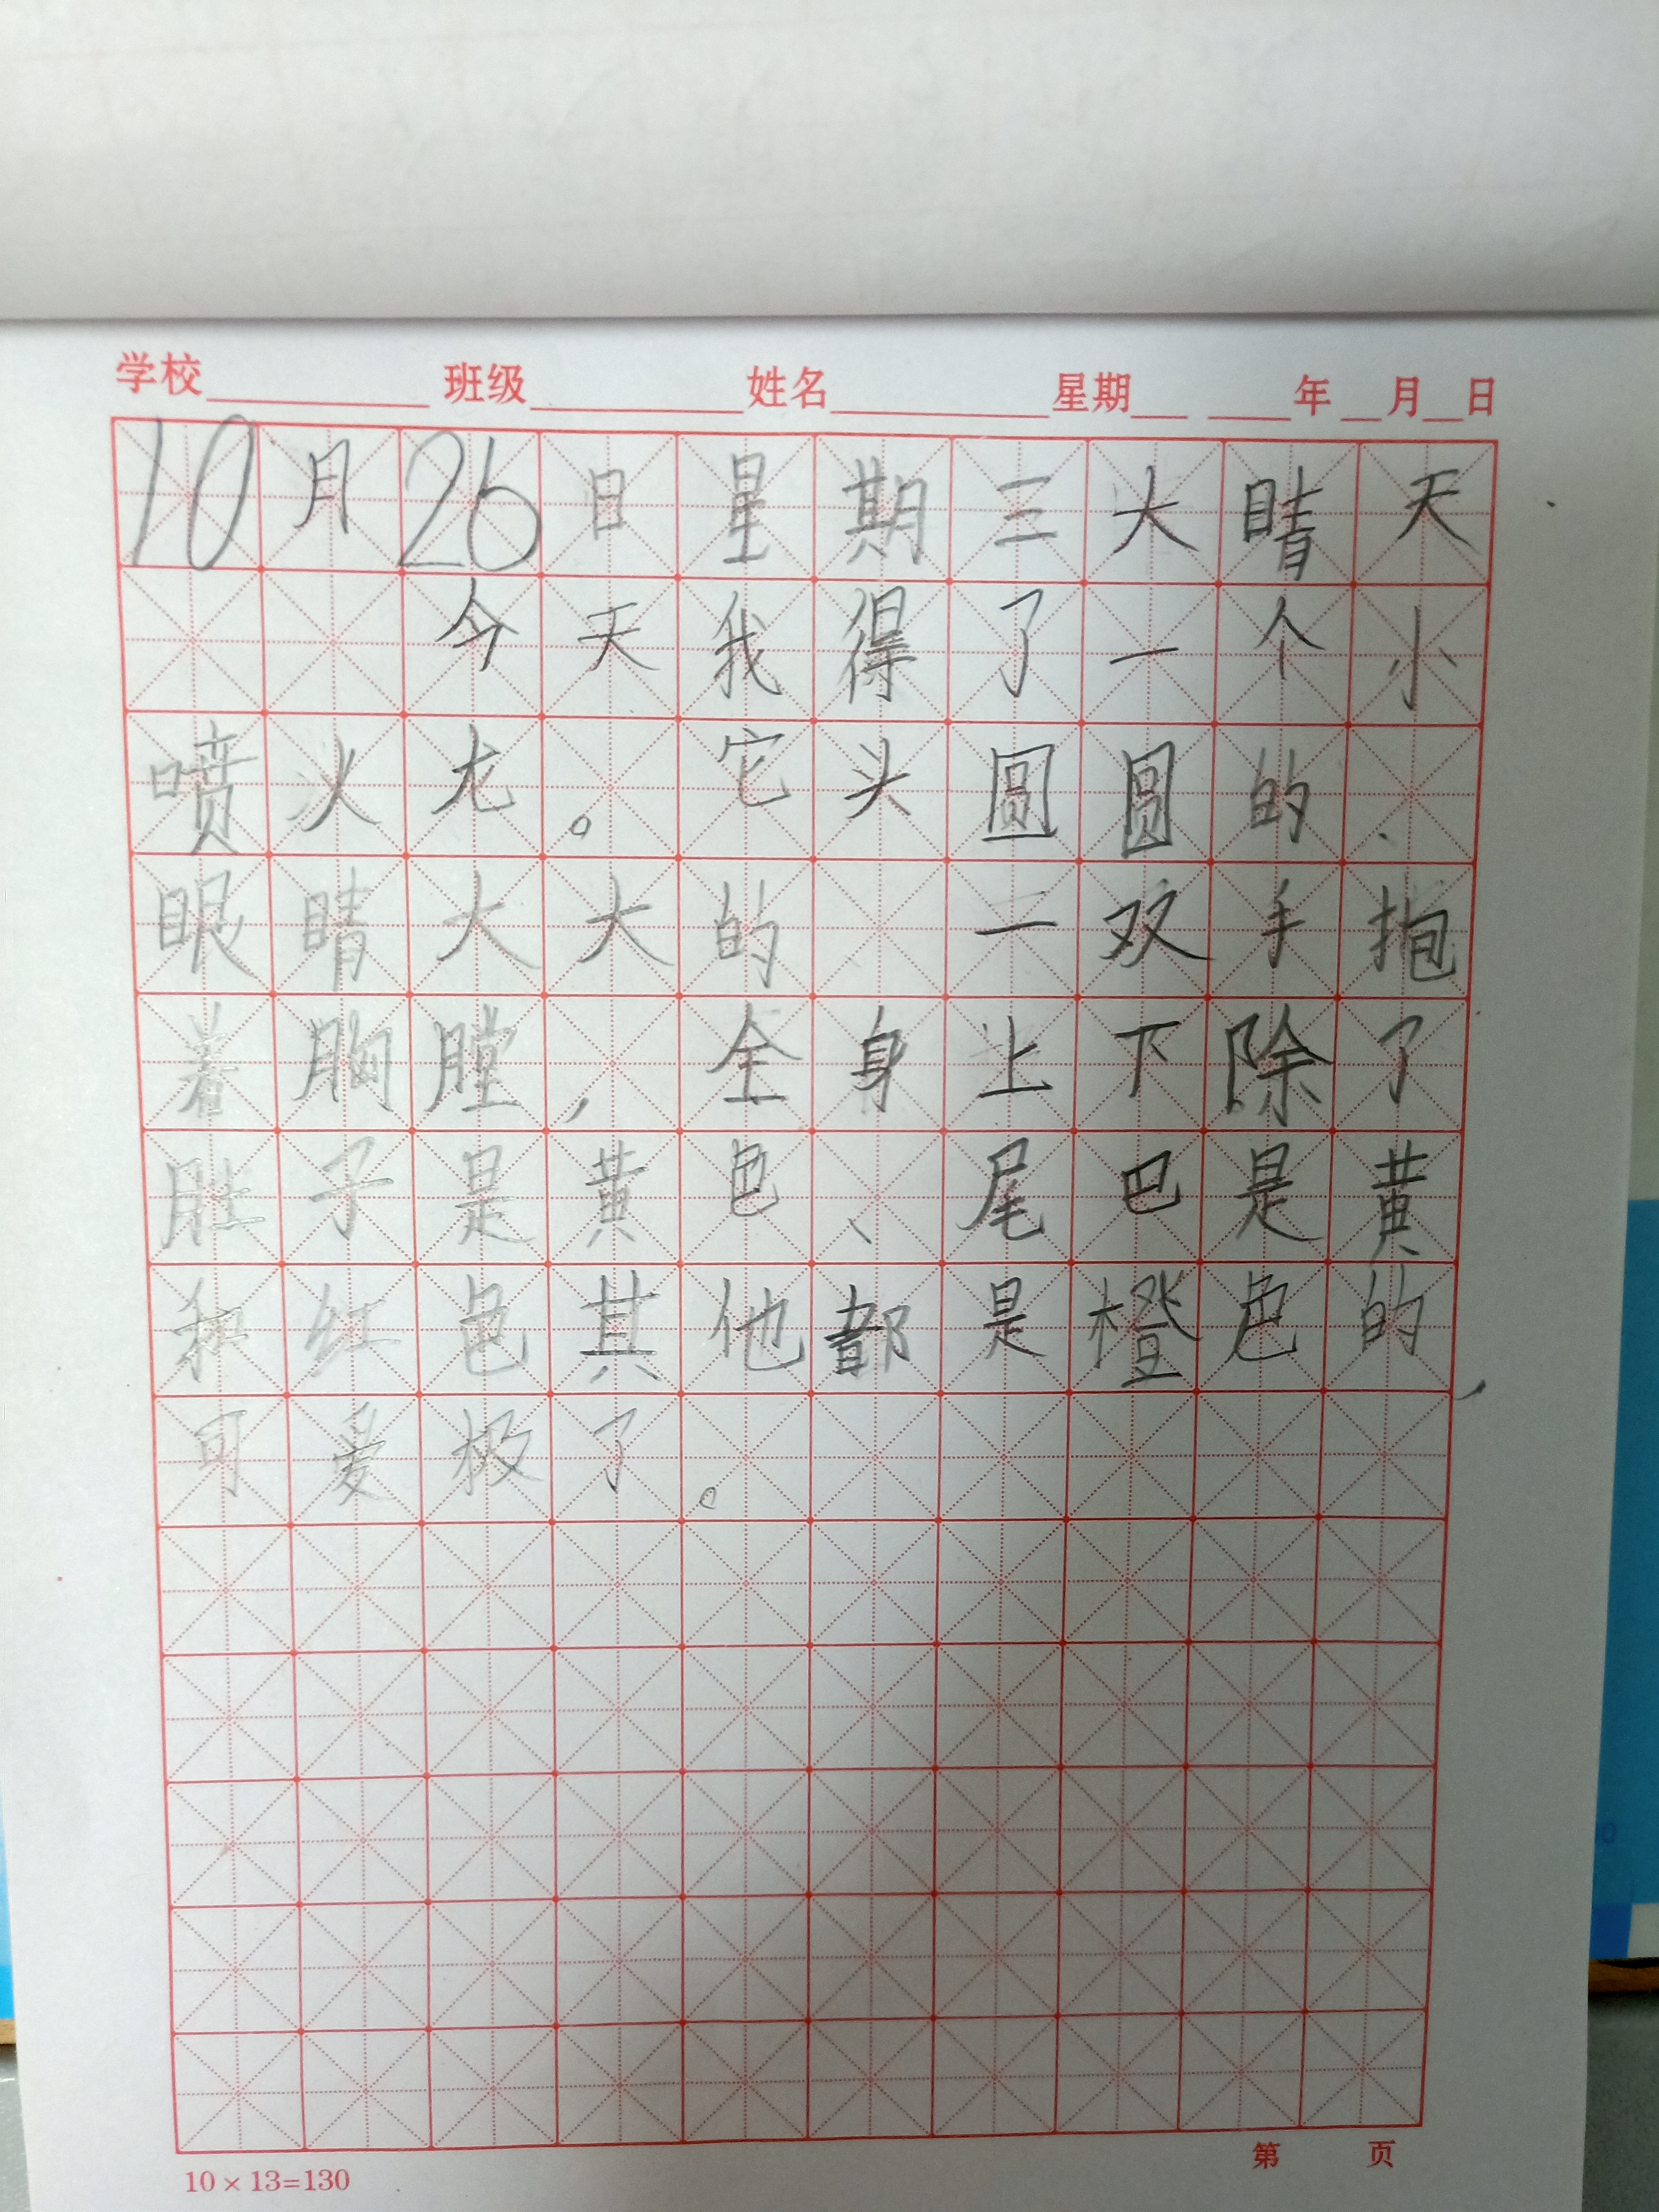 学校 班级 姓名 星期 年 月 日
10月26日星期三大睛天
今天我得了一个小
喷火龙。它头圆圆的、
眼睛大大的 一双手抱
着胸膛，全身上下除了
肚子是黄色、尾巴是黄
和红色其他都是橙色的，
可爱极了。
第 页
10×13=130